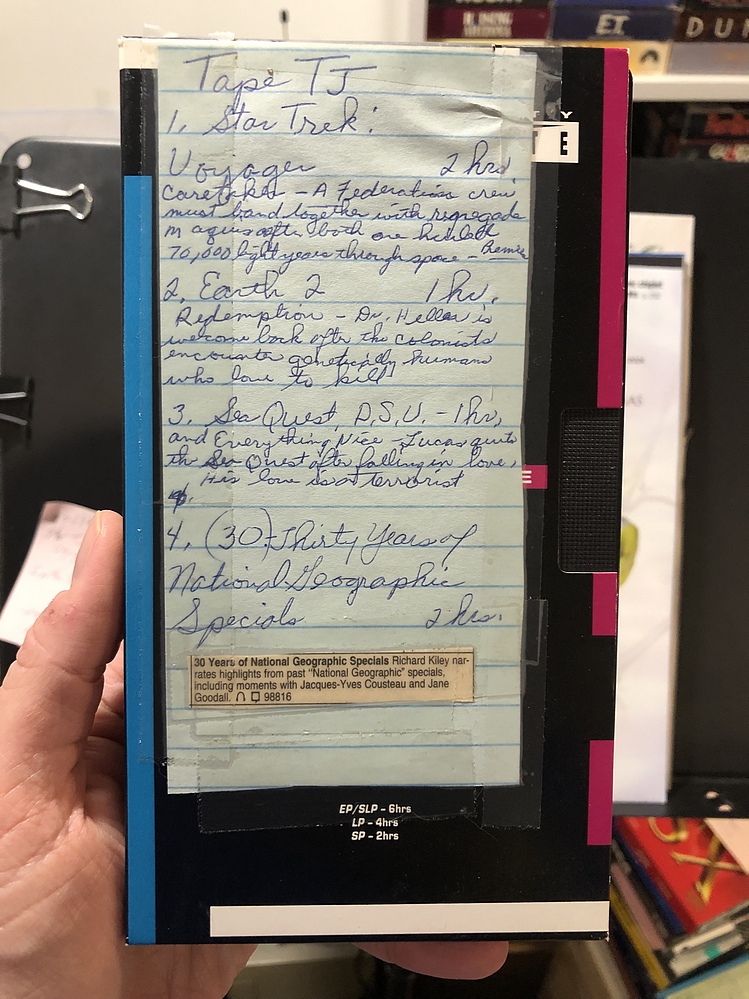 E.T.
DUN
Y
E
Tape TJ
1. Star Trek:
Voyager 2 hrs
Caretaker - A Federation crew
must band together with renegade
Maquis after both are hurled
70,000 light years through space - Premier
2. Earth 2 1 hr.
Redemption - Dr. Heller is
welcome back after the colonists
encounter genetically humans
who love to kill
3. Sea Quest, D.S.V. - 1 hr,
and Everything Nice - Lucas quits
the Sea Quest after falling in love,
His love is a terrorist
E
4. (30) - Thirty Years of
National Geographic
Specials 2 hrs.
30 Years of National Geographic Specials Richard Kiley nar-
rates highlights from past "National Geographic" specials,
including moments with Jacques-Yves Cousteau and Jane
Goodall. 98816
EP/SLP - 6hrs
LP - 4hrs
SP - 2hrs